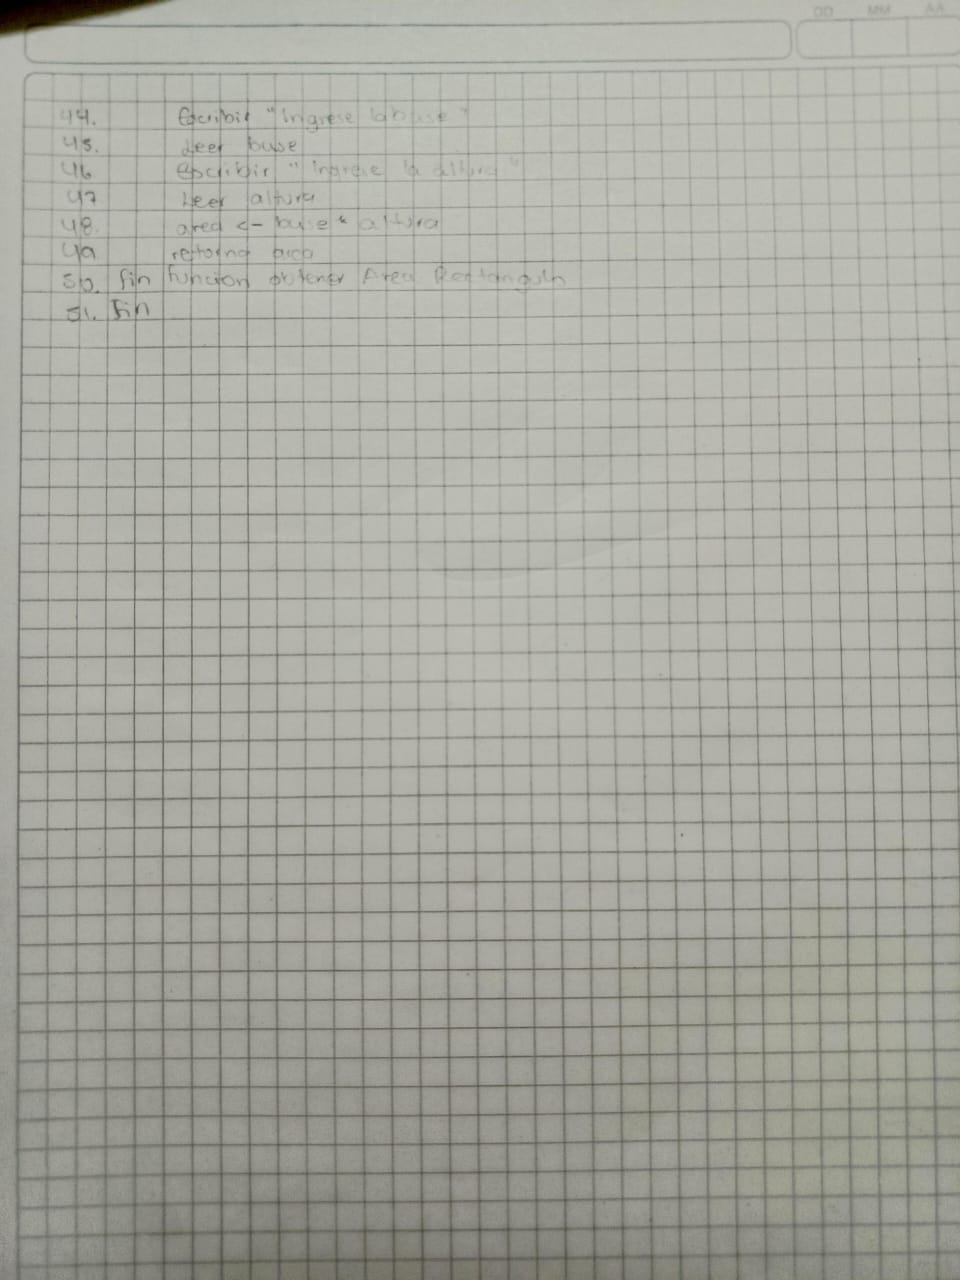 DD MM AA
44. Escribir "Ingrese la base"
45. Leer base
46 Escribir "ingrese la altura"
47 Leer altura
48. area <- base * altura
49 retorna area
50. fin funcion obtener Area Rectangulo
51. Fin